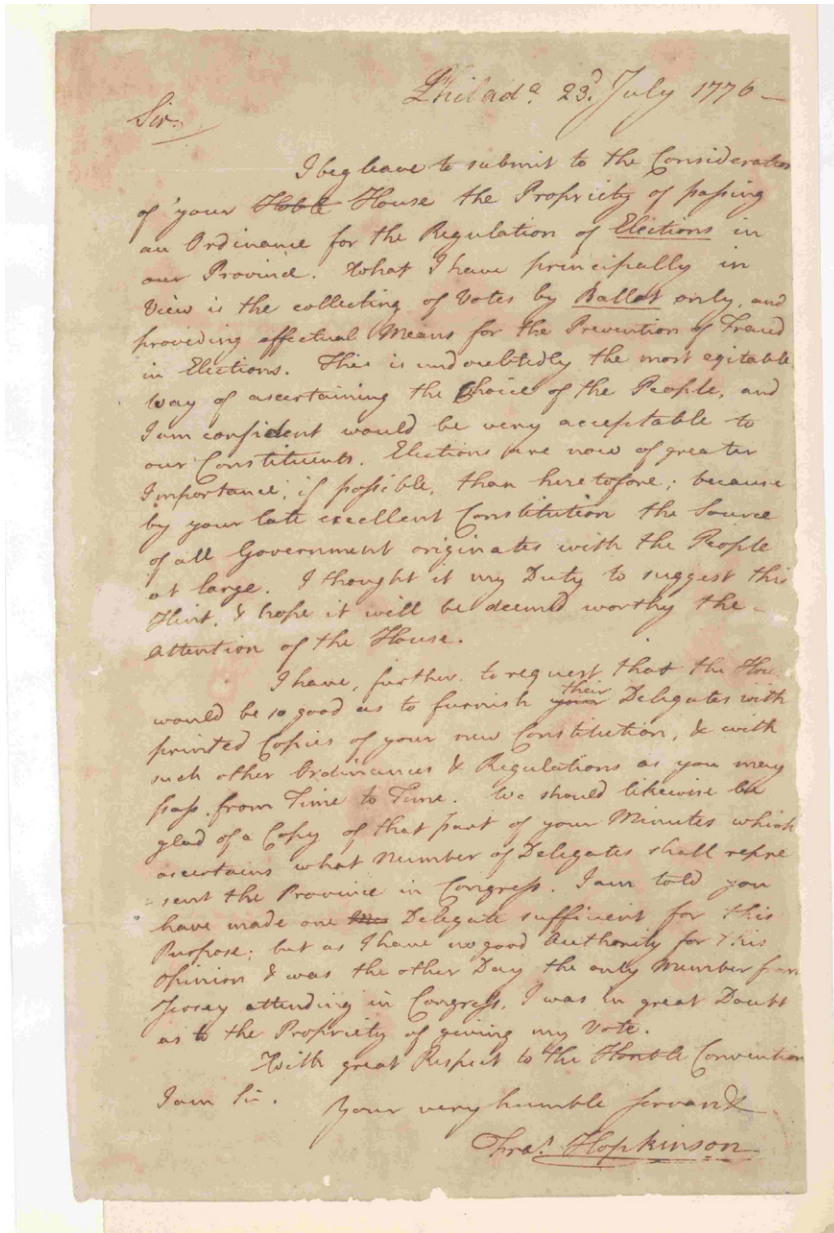 Philad.ª 23.d July 1776 —
Sir.
I beg leave to submit to the Consideration
of your Hoble House the Propriety of passing
an Ordinance for the Regulation of Elections in
our Province. What I have principally in
View is the collecting of Votes by Ballot only, and
providing effectual Means for the Prevention of Fraud
in Elections. This is undoubtedly the most eqitable
Way of ascertaining the Choice of the People, and
I am confident would be very acceptable to
our Constituents. Elections are now of greater
Importance, if possible, than heretofore; because
by your late excellent Constitution the Source
of all Government originates with the People
at large. I thought it my Duty to suggest this
Hint, & hope it will be deemed worthy the —
Attention of the House.
I have, further, to request that the Hou
would be so good as to furnish their Delegates with
printed Copies of your new Constitution, & with
such other Ordinances & Regulations as you may
pass from Time to Time. We should likewise be
glad of a Copy of that part of your Minutes which
ascertains what Number of Delegates shall repre
-sent the Province in Congress. I am told you
have made one Delegate sufficient for this
Purpose; but as I have no good Authority for this
Opinion & was the other Day the only Member from
Jersey attending in Congress, I was in great Doubt
as to the Propriety of giving my Vote.
With great Respect to the Honble Convention
I am Sir.
Your very humble Servant
Fras. Hopkinson